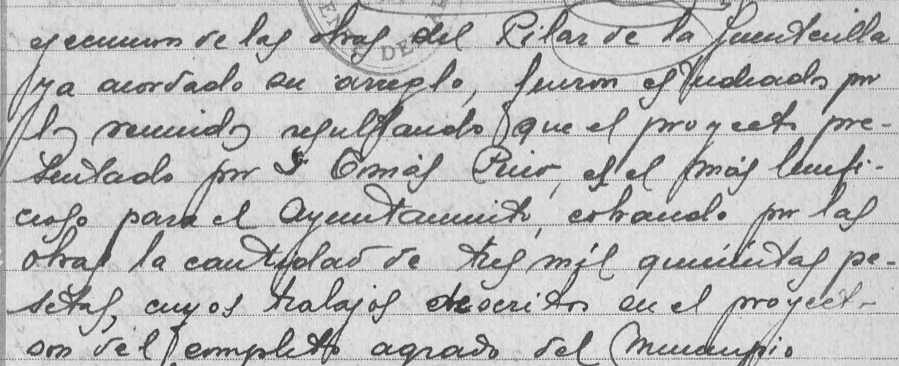 ejecución de las obras del Pilar de la fuentecilla
ya acordado su arreglo, fueron estudiados por
los reunidos resultando que el proyecto pre-
sentado por D Tomás Pino, es el más benefi-
cioso para el Ayuntamiento, cobrando por las
obras la cantidad de tres mil quinientas pe-
setas, cuyos trabajos descritos en el proyecto
son del completo agrado del Municipio